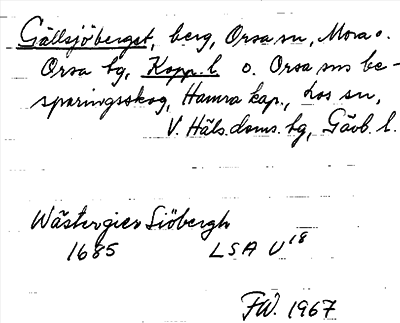 Gällsjöberget, berg, Orsa sn, Mora o.
Orsa tg, Kopp. l. o. Orsa sns be-
sparingsskog, Hamra kap., Los sn,
V. Häls. doms. tg, Gävb. l.
Wästergier Siöbergh
1685 LSA U 18
FW. 1967